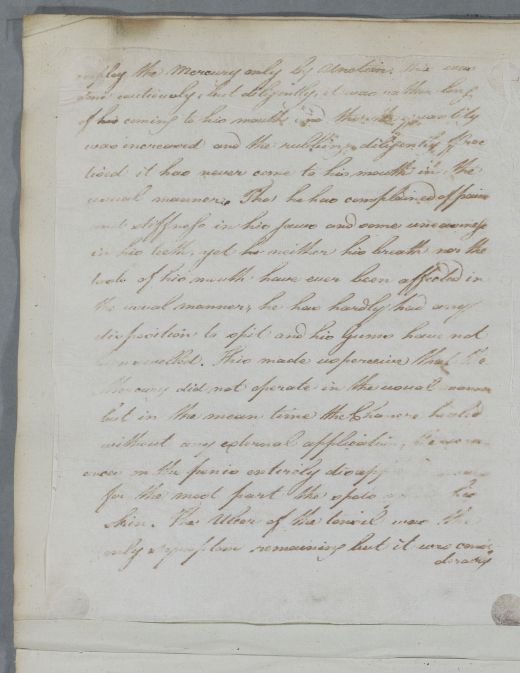 employ the Mercury only by Unction. this was
done cautiously, but diligently, it was rather long
of his coming to his mouth, and tho the quantity
was increased and the rubbing diligently
it had never come to his mouth in the
usual manner. Tho he has complained of pain
and stiffness in his jaws and some uneasiness
in his teeth, yet neither his breath nor the
of his mouth have ever been affected in
the usual manner, he has hardly had any
disposition to spit and his Gums have not
swelled. This made us perceive that the
Mercury did not operate in the usual manner
but in the mean time the Chancre healed
without any external application, the
on the penis entirely
for the most part the spots
skin. The Ulcer of the tonsil was the
only symptom remaining but it was consi
derably